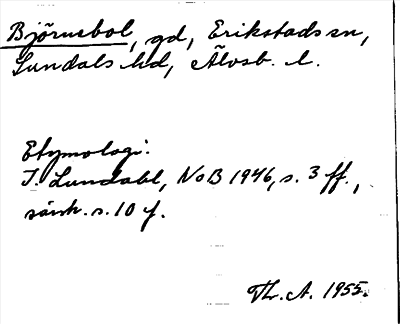 Björnsbol, gd, Erikstads sn,
Sundals hd, Älvsb. l.
Etymologi:
I. Lundahl, NoB 1946, s. 3 ff.,
särsk. s. 10 f.
Th. A. 1955.